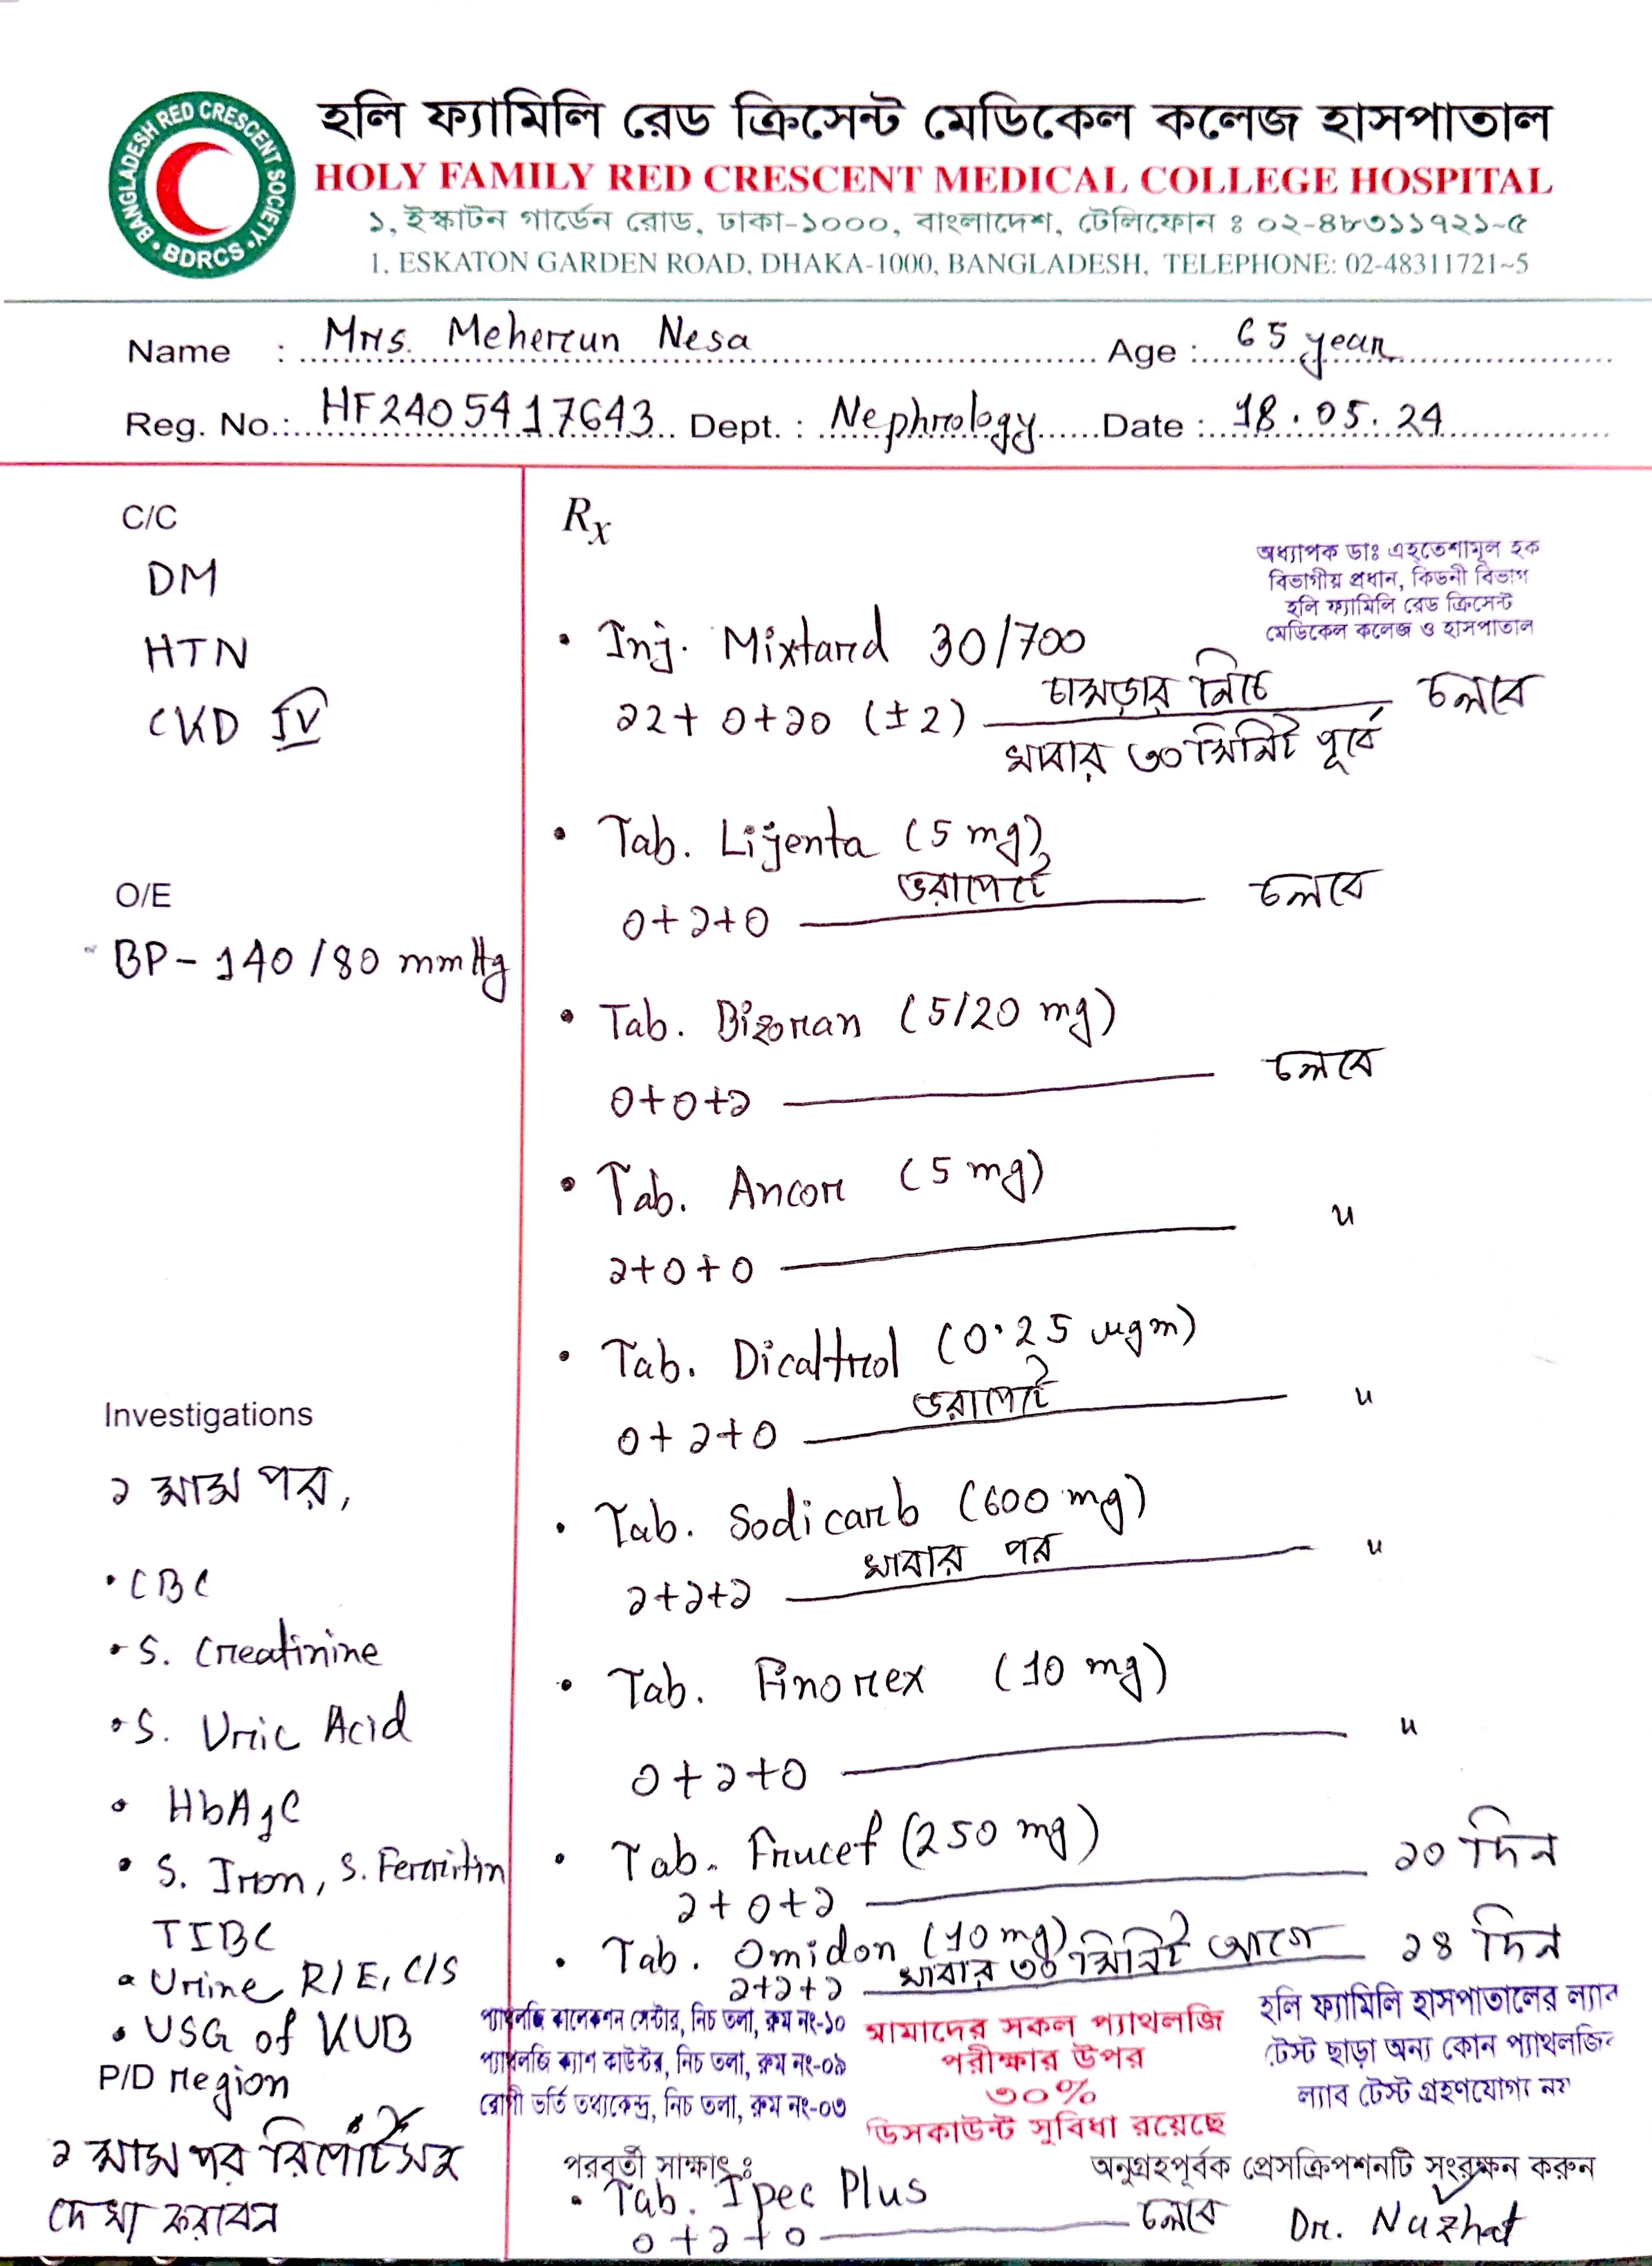 BANGLADESH RED CRESCENT SOCIETY • BDRCS •
হলি ফ্যামিলি রেড ক্রিসেন্ট মেডিকেল কলেজ হাসপাতাল
HOLY FAMILY RED CRESCENT MEDICAL COLLEGE HOSPITAL
১, ইস্কাটন গার্ডেন রোড, ঢাকা-১০০০, বাংলাদেশ, টেলিফোন ঃ ০২-৪৮৩১১৭২১~৫
1, ESKATON GARDEN ROAD, DHAKA-1000, BANGLADESH, TELEPHONE: 02-48311721~5
Name : Mrs. Meherun Nesa Age : 65 year
Reg. No.: HF2405417643 Dept. : Nephrology Date : 18.05.24
C/C
DM
HTN
CKD IV
O/E
BP - 140/80 mmHg
Investigations
১ মাস পর,
• CBC
• S. Creatinine
• S. Uric Acid
• HbA1C
• S. Iron, S. Ferritin
TIBC
• Urine R/E, C/S
• USG of KUB
P/D region
১ মাস পর রিপোর্টসহ
দেখা করবেন
Rx
অধ্যাপক ডাঃ এহ্‌তেশামুল হক
বিভাগীয় প্রধান, কিডনী বিভাগ
হলি ফ্যামিলি রেড ক্রিসেন্ট
মেডিকেল কলেজ ও হাসপাতাল
• Inj. Mixtard 30/700
২২+ ০+২০ (±2) চামড়ার নিচে চলবে
খাবার ৩০ মিনিট পূর্বে
• Tab. Lijenta (5 mg)
ভরাপেটে চলবে
০+১+০
• Tab. Bizoran (5/20 mg)
০+০+১ চলবে
• Tab. Ancor (5 mg)
১+০+০ "
• Tab. Dicaltrol (0.25 µgm)
ভরাপেটে "
০+১+০
• Tab. Sodicarb (600 mg)
খাবার পর "
১+১+১
• Tab. Finorex (10 mg)
০+১+০ "
• Tab. Frucef (250 mg)
১+০+১ ১০ দিন
• Tab. Omidon (10 mg)
১+১+১ খাবার ৩০ মিনিট আগে ১৪ দিন
প্যাথলজি কালেকশন সেন্টার, নিচ তলা, রুম নং-১০
প্যাথলজি ক্যাশ কাউন্টার, নিচ তলা, রুম নং-০৯
রোগী ভর্তি তথ্যকেন্দ্র, নিচ তলা, রুম নং-০৩
আমাদের সকল প্যাথলজি
পরীক্ষার উপর
৩০%
ডিসকাউন্ট সুবিধা রয়েছে
হলি ফ্যামিলি হাসপাতালের ল্যাব
টেস্ট ছাড়া অন্য কোন প্যাথলজির
ল্যাব টেস্ট গ্রহণযোগ্য নয়
পরবর্তী সাক্ষাৎ ঃ
অনুগ্রহপূর্বক প্রেসক্রিপশনটি সংরক্ষন করুন
• Tab. Ipec Plus
০+১+০ চলবে
Dr. Nuzhat